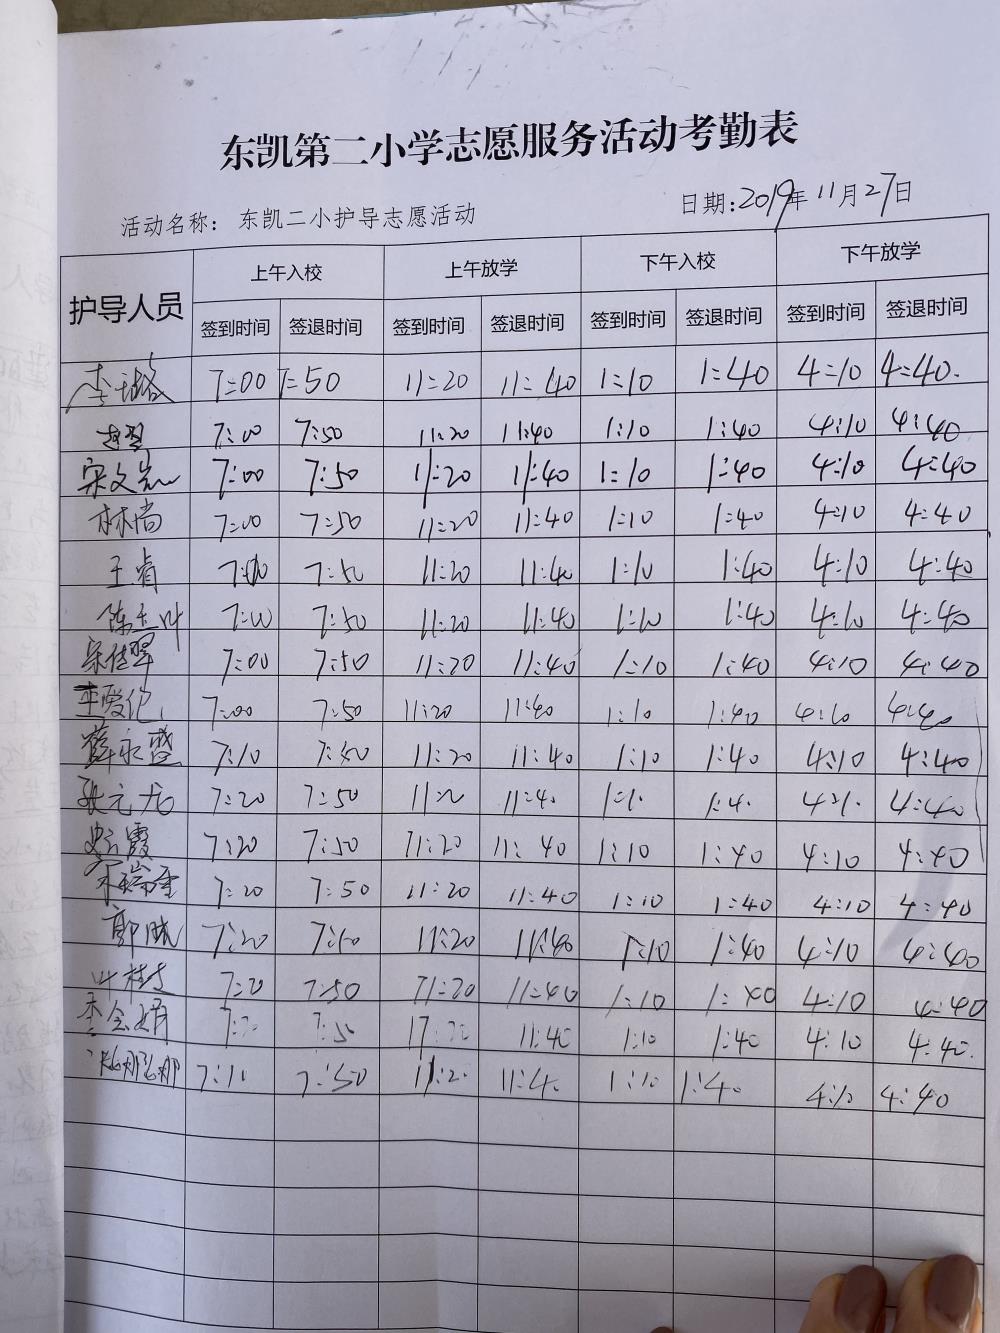 东凯第二小学志愿服务活动考勤表
活动名称：东凯二小护导志愿活动 日期：2019年11月27日
护导人员 上午入校 上午放学 下午入校 下午放学
签到时间 签退时间 签到时间 签退时间 签到时间 签退时间 签到时间 签退时间
李璐 7:00 7:50 11:20 11:40 1:10 1:40 4:10 4:40.
7:00 7:50 11:20 11:40 1:10 1:40 4:10 4:40
宋文 7:00 7:50 11:20 11:40 1:10 1:40 4:10 4:40
林尚 7:00 7:50 11:20 11:40 1:10 1:40 4:10 4:40
王睿 7:00 7:50 11:20 11:40 1:10 1:40 4:10 4:40
陈玉叶 7:00 7:50 11:20 11:40 1:10 1:40 4:10 4:40
宋佳翠 7:00 7:50 11:20 11:40 1:10 1:40 4:10 4:40
李爱伦 7:00 7:50 11:20 11:40 1:10 1:40 4:10 4:40
薛永慧 7:10 7:50 11:20 11:40 1:10 1:40 4:10 4:40
张元龙 7:20 7:50 11:20 11:40 1:10 1:40 4:10 4:40
霞 7:20 7:50 11:20 11:40 1:10 1:40 4:10 4:40
7:20 7:50 11:20 11:40 1:10 1:40 4:10 4:40
郭 7:20 7:50 11:20 11:40 1:10 1:40 4:10 4:40
叶桂 7:20 7:50 11:20 11:40 1:10 1:40 4:10 4:40
李会娟 7:20 7:50 11:20 11:40 1:10 1:40 4:10 4:40.
7:10 7:50 11:20 11:40 1:10 1:40 4:10 4:40